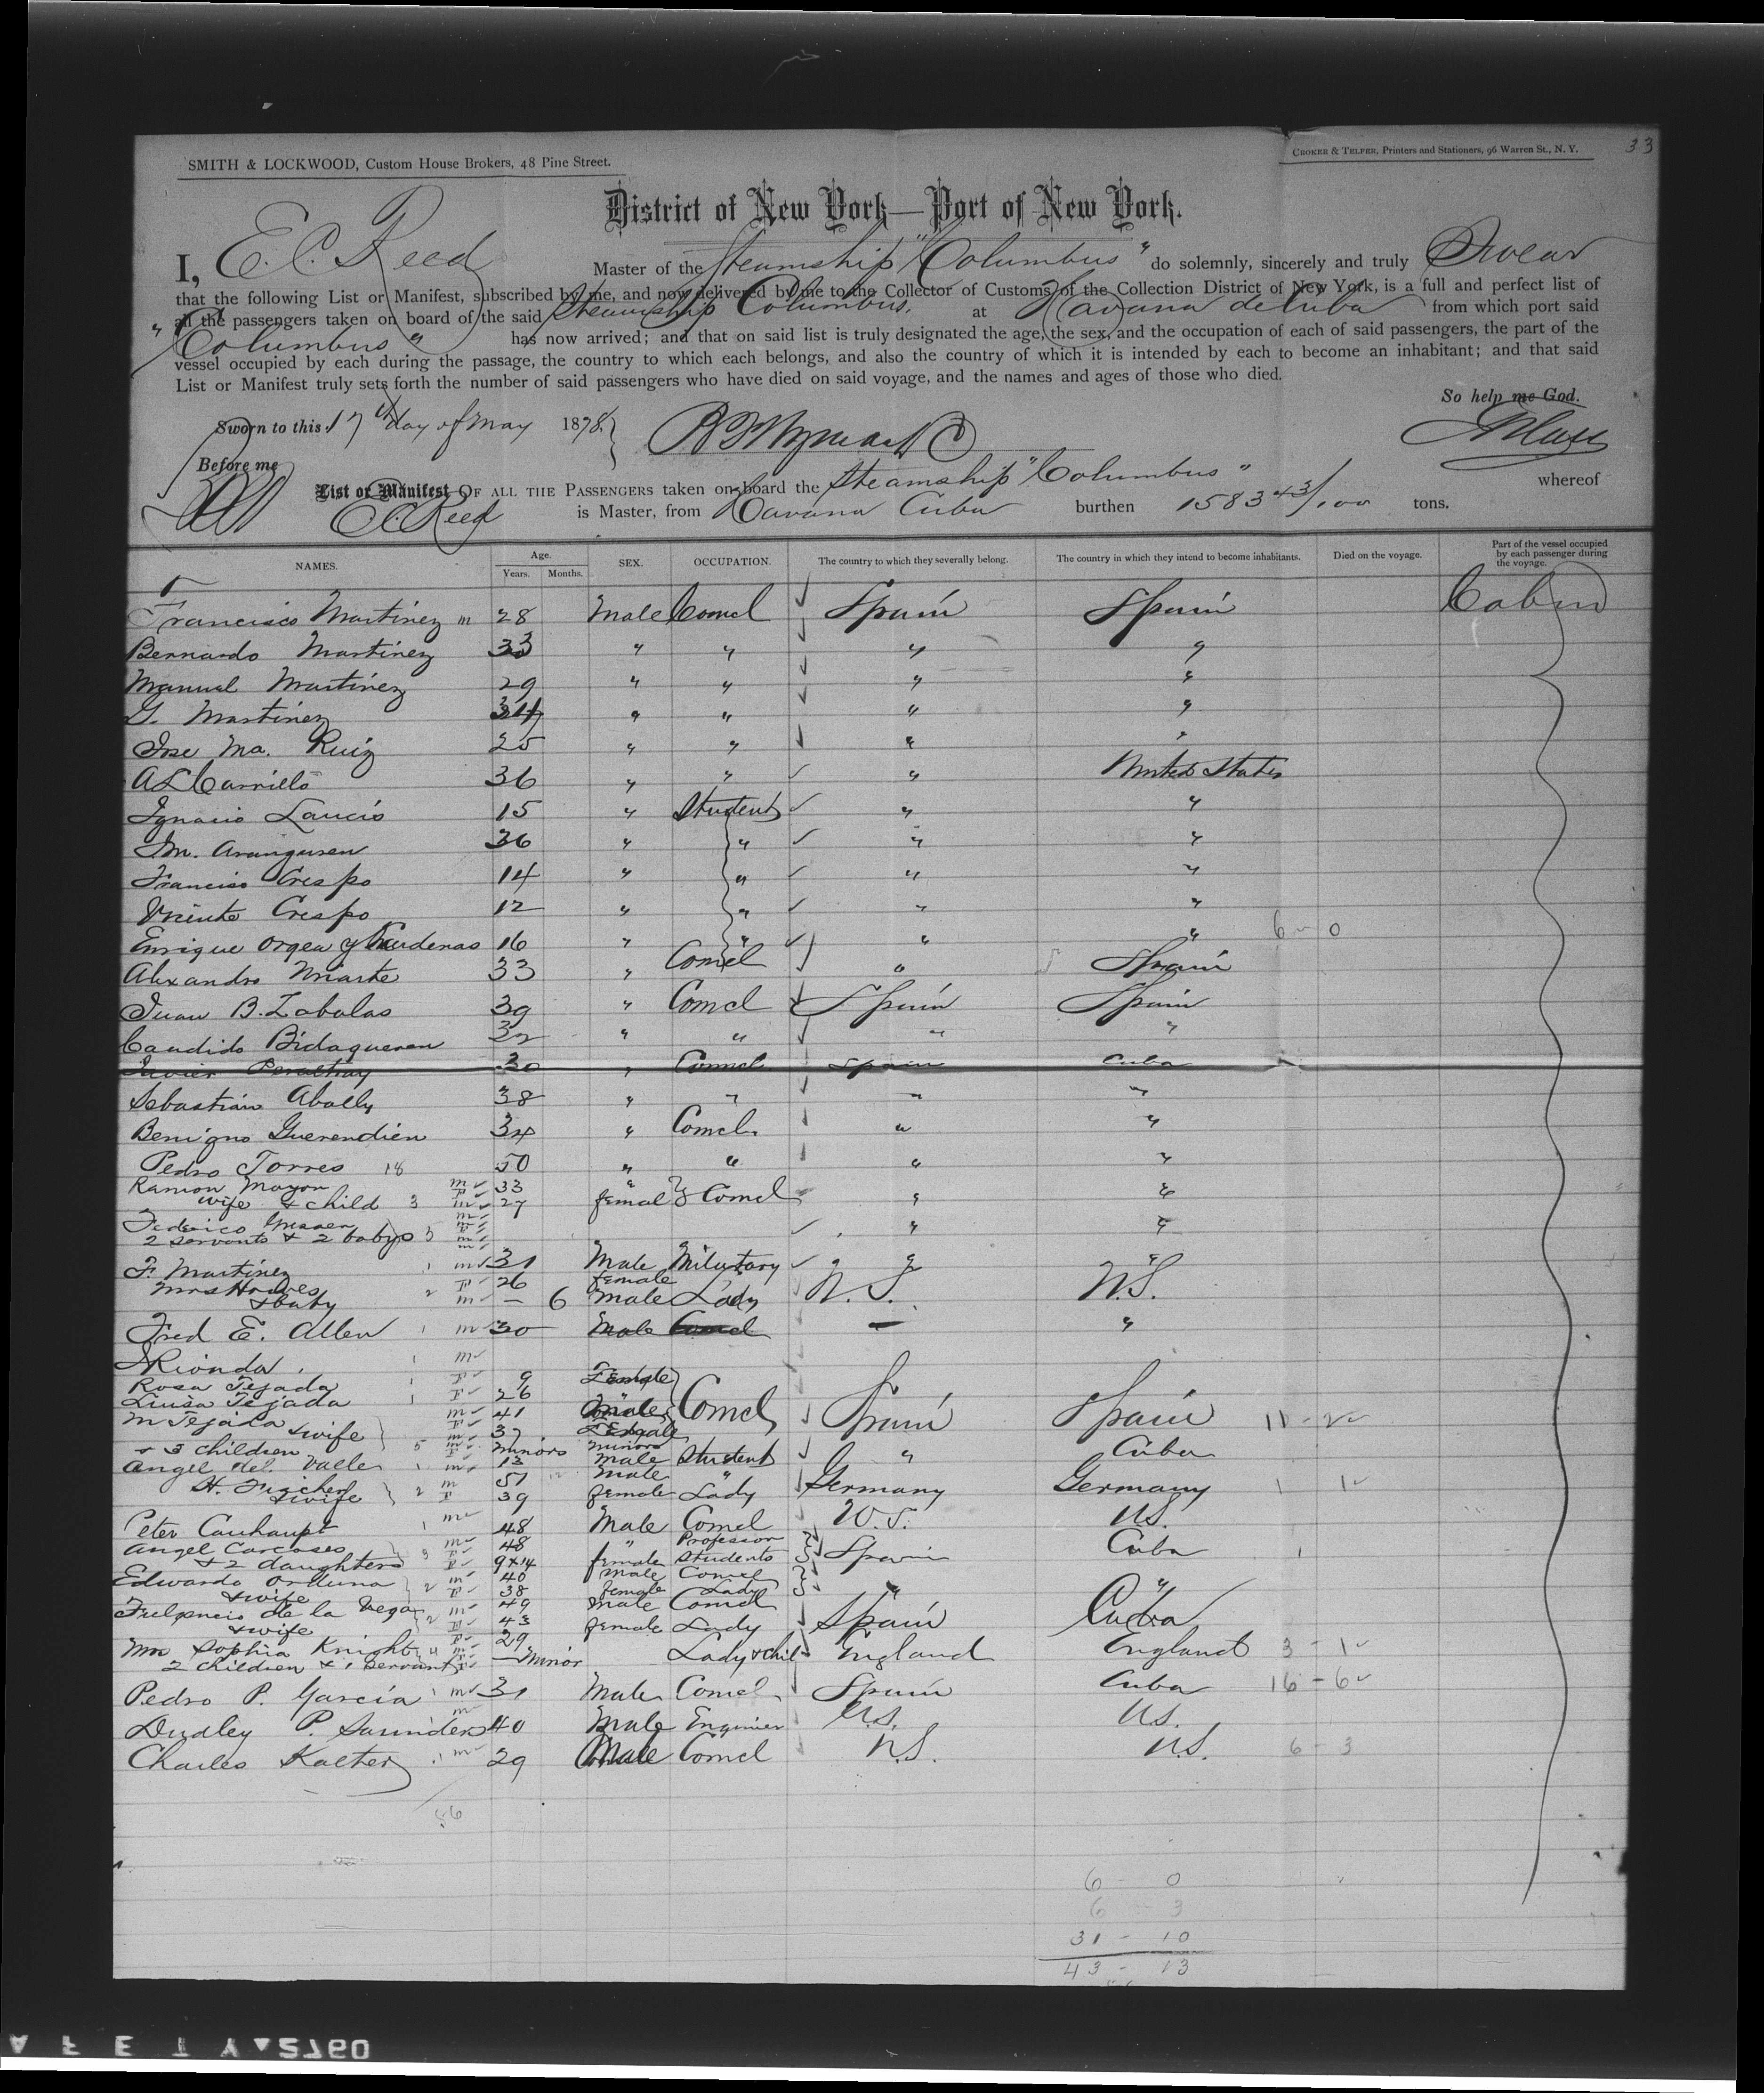 33
SMITH & LOCKWOOD, Custom House Brokers, 48 Pine Street.
CROKER & TELFER, Printers and Stationers, 96 Warren St., N. Y.
District of New York—Port of New York.
I, E. C. Reed Master of the Steamship "Columbus" do solemnly, sincerely and truly Swear
that the following List or Manifest, subscribed by me, and now delivered by me to the Collector of Customs of the Collection District of New York, is a full and perfect list of
all the passengers taken on board of the said Steamship Columbus. at Havana de Cuba from which port said
"Columbus" has now arrived; and that on said list is truly designated the age, the sex, and the occupation of each of said passengers, the part of the
vessel occupied by each during the passage, the country to which each belongs, and also the country of which it is intended by each to become an inhabitant; and that said
List or Manifest truly sets forth the number of said passengers who have died on said voyage, and the names and ages of those who died.
So help me God.
Sworn to this 17th day of May 1878.
Before me
List or Manifest OF ALL THE PASSENGERS taken on board the Steamship "Columbus" whereof
E.C. Reed is Master, from Havana Cuba burthen 1583 43/100 tons.
NAMES. Age. Years. Months. SEX. OCCUPATION. The country to which they severally belong. The country in which they intend to become inhabitants. Died on the voyage. Part of the vessel occupied by each passenger during the voyage.
Francisco Martinez m 28 Male Comcl Spain Spain Cabin
Bernardo Martinez 33 " " " "
Manual Martinez 29 " " " "
G. Martinez " " " "
Jose Ma. Ruiz 25 " " " "
A L Carrillo 36 " " " United States
Ignacio Laucis 15 " Student " "
Jm. Aranguren 36 " " " "
Francisco Crespo 14 " " " "
Vicente Crespo 12 " " " "
Enrique Orgea y Cardenas 16 " " " " 6 - 0
Alexandro Uriarte 33 " Comcl " Spain
Juan B. Zabalas 39 " Comcl Spain Spain
Candido Bidagueren 32 " " " "
Javier 30 " Comcl Spain Cuba
Sebastian Abally 38 " " " "
Benigno Guerendien 34 " Comcl. " "
Pedro Torres 18 50 " " " "
Ramon Mayor m 33 "
wife & child 3 27 femal Comcl " "
Federico
2 servants & 2 babys 5 " "
F. Martinez 1 m 31 Male Military " "
Mrs 2 F 26 female
& baby m — 6 Male Lady U.S. U.S.
Fred E. Allen 1 m 30 Male Comcl — "
Rionda. 1 m
Rosa Tejada 1 F 9 Female
Luisa Tejada 1 F 26 "
M Tejada & wife m 41 Male Comcl Spain Spain 11 - 2
F 37 Female
& 3 children 5 minors minors
Angel del Valle 1 m 13 Male Student " Cuba
H. 2 m 51 Male "
& wife F 39 female Lady Germany Germany 1 1
Peter 1 m 48 Male Comcl U.S. U.S.
Angel Carcases m 48 " Professor
& 2 daughters 3 F 9 & 14 female Students Spain Cuba 1
Edwardo Orduna 2 m 40 Male Comcl
& wife F 38 female Lady " "
de la Vega 2 m 49 Male Comcl
& wife F 43 female Lady Spain Cuba
Mrs Sophia Knight 4 F 29
2 children & 1 servant — Minor Lady & chil England England 3 - 1
Pedro P. Garcia 1 m 31 Male Comcl Spain Cuba 16 - 6
Dudley P. Saunders m 40 Male Engineer U.S. U.S.
Charles Kalter 1 m 29 Male Comcl U.S. U.S. 6 - 3
56
6 - 0
6 - 3
31 - 10
43 - 13
SAFETY 5760